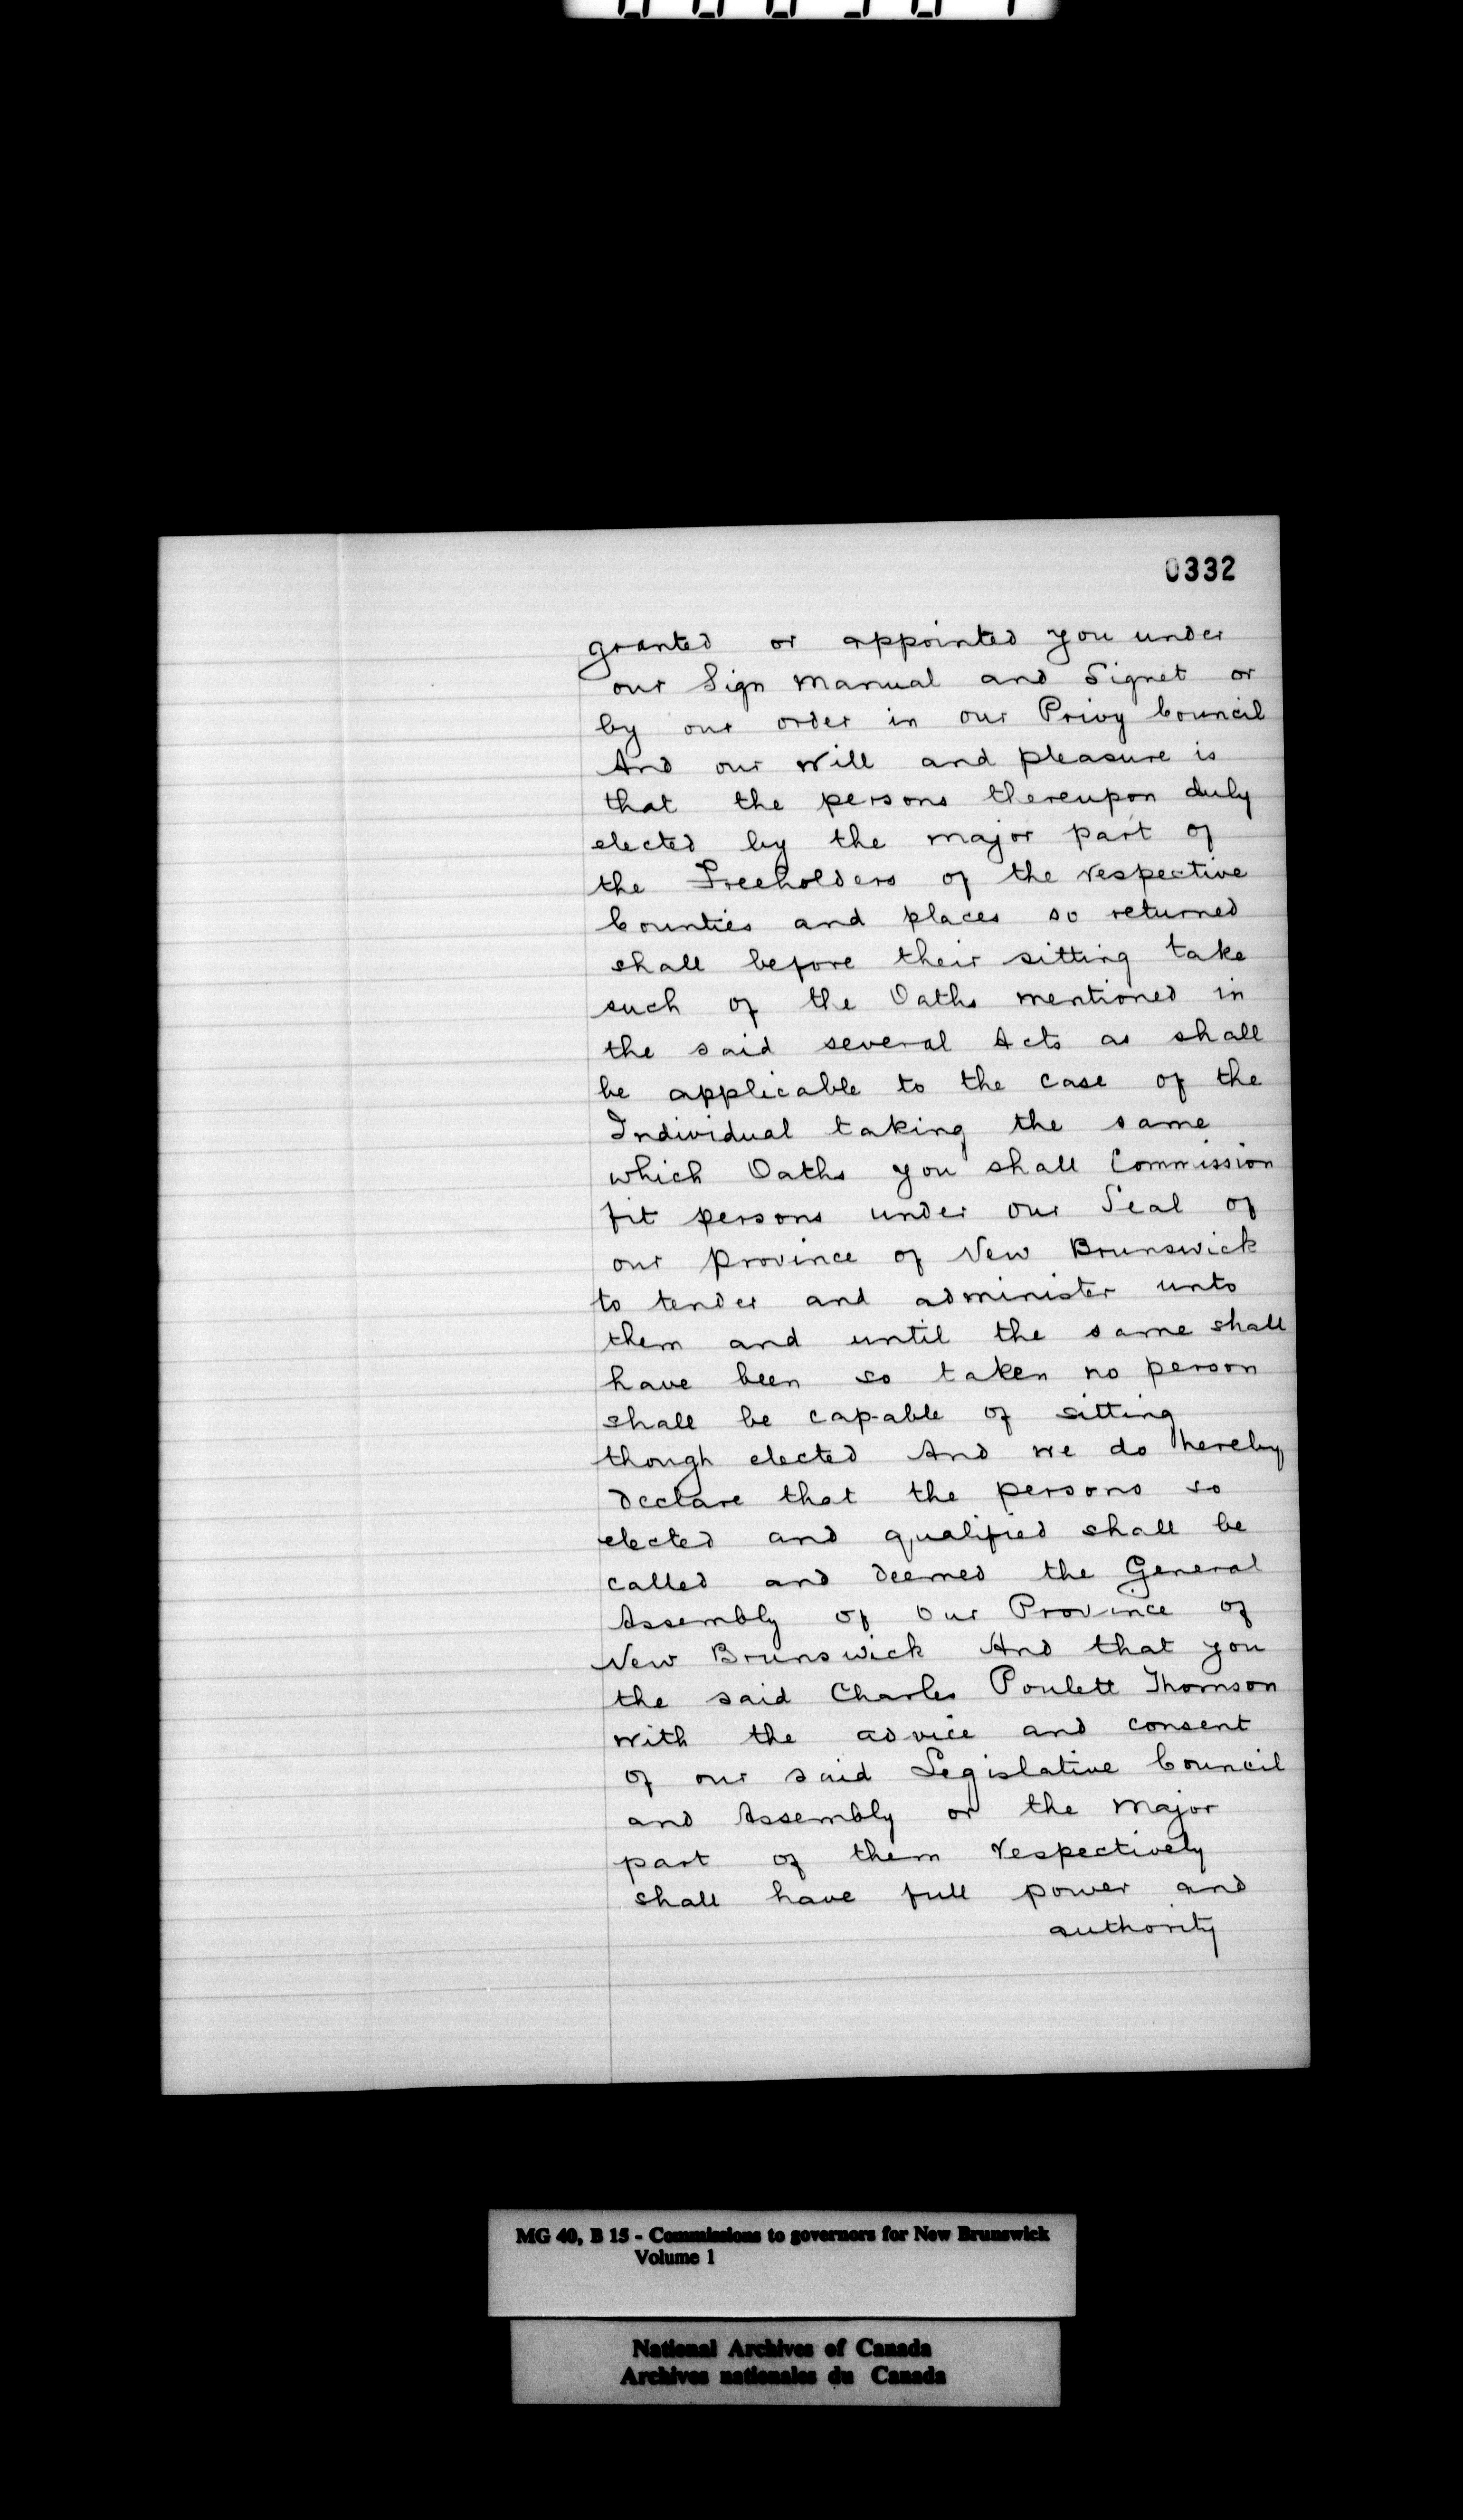 0332
granted or appointed you under
our Sign Manual and Signet or
by our order in our Privy Council
And our Will and pleasure is
that the persons thereupon duly
elected by the major part of
the Freeholders of the respective
Counties and places so returned
shall before their sitting take
such of the Oaths mentioned in
the said several Acts as shall
be applicable to the case of the
Individual taking the same
which Oaths you shall Commission
fit persons under our Seal of
our Province of New Brunswick
to tender and administer unto
them and until the same shall
have been so taken no person
shall be capable of sitting
though elected And we do hereby
declare that the persons so
elected and qualified shall be
called and deemed the General
Assembly of our Province of
New Brunswick And that you
the said Charles Poulett Thomson
with the advice and consent
of our said Legislative Council
and Assembly or the Major
part of them respectively
shall have full power and
authority
MG 40, B 15 - Commissions to governors for New Brunswick
Volume 1
National Archives of Canada
Archives nationales du Canada